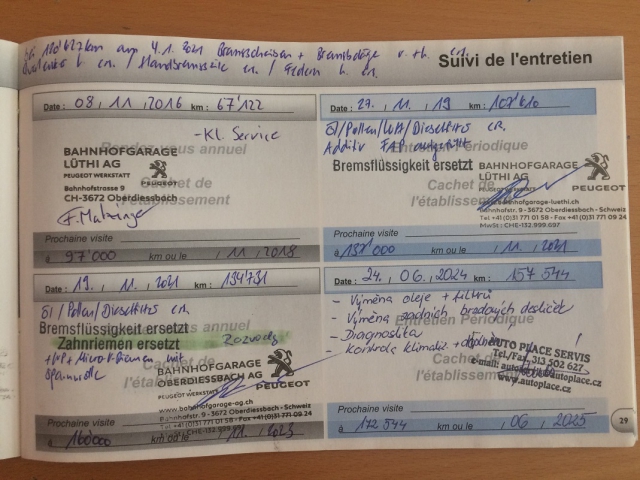 Bei 120'427km am 4.1.2021 Bremsscheiben + Bremsbeläge v. + h. er.
h er. / Handbremsseile er. / Federn h. er.
Suivi de l'entretien
Date : 08 , 11 , 2016 km : 67'122
- Kl. Service
Rendez-vous annuel
BAHNHOFGARAGE
LÜTHI AG
PEUGEOT WERKSTATT
PEUGEOT
Bahnhofstrasse 9
CH-3672 Oberdiessbach
Cachet de
l'établissement
Prochaine visite
à 97'000 km ou le , 11 , 2018
Date : 27 , 11 , 19 km : 107'610
Öl/Pollen/Luft/Dieselfilter er.
Additiv FAP aufgefüllt
Entretien Périodique
Bremsflüssigkeit ersetzt
BAHNHOFGARAGE
LÜTHI AG
PEUGEOT WERKSTATT
PEUGEOT
Cachet de
l'établissement
www.bahnhofgarage-luethi.ch
Bahnhofstr. 9 - 3672 Oberdiessbach - Schweiz
Tel +41 (0)31 771 01 58 - Fax +41 (0)31 771 09 24
MwSt : CHE-132.999.697
Prochaine visite
à 137'000 km ou le , 11 , 2021
Date : 19 , 11 , 2021 km : 134'731
Öl / Pollen / Dieselfilter er.
Rendez-vous annuel
Bremsflüssigkeit ersetzt
Zahnriemen ersetzt
Rozvody
+ WP + Micro-V-Riemen mit
Spannrolle
Cachet de
l'établissement
BAHNHOFGARAGE
OBERDIESSBACH AG
PEUGEOT WERKSTATT
PEUGEOT
www.bahnhofgarage-ag.ch
Bahnhofstr. 9 - 3672 Oberdiessbach - Schweiz
Tel +41 (0)31 771 01 58 - Fax +41 (0)31 771 09 24
Prochaine visite
à 160'000 km ou le , 11 , 2023
Date : 24 , 06 , 2024 km : 157 544
- Výměna oleje + filtrů
- Výměna zadních brzdových destiček
- Diagnostika
Entretien Périodique
- Kontrola klimatiz +
AUTO PLACE SERVIS
Tel./Fax: 313 502 627
www.autoplace.cz
Cachet de
l'établissement
Prochaine visite
à 172 544 km ou le , 06 , 2025
29